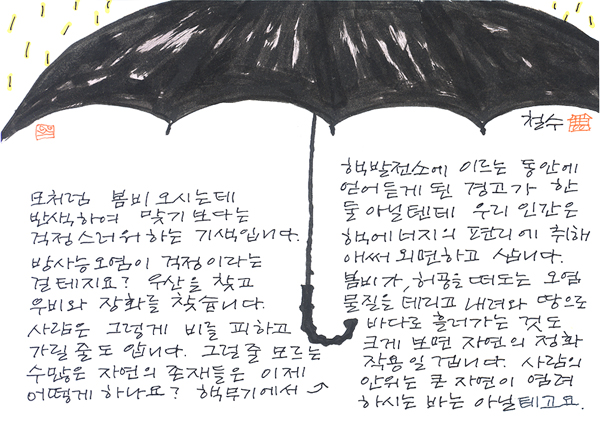 모처럼 봄비 오시는데
반색하여 맞기 보다는
걱정스러워 하는 기색입니다.
방사능오염이 걱정이라는
걸테지요? 우산을 찾고
우비와 장화를 찾습니다.
사람은 그렇게 비를 피하고
가릴 줄도 압니다. 그럴 줄 모르는
수많은 자연의 존재들은 이제
어떻게 하나요? 핵무기에서
철수
핵발전소에 이르는 동안에
얻어 듣게 된 경고가 한
둘 아닐텐데 우리 인간은
핵에너지의 편리에 취해
애써 외면하고 삽니다.
봄비가, 허공을 떠도는 오염
물질을 데리고 내려와 땅으로
바다로 흘러가는 것도
크게 보면 자연의 정화
작용일 겁니다. 사람의
안위는 큰 자연이 염려
하시는 바는 아닐테고요.